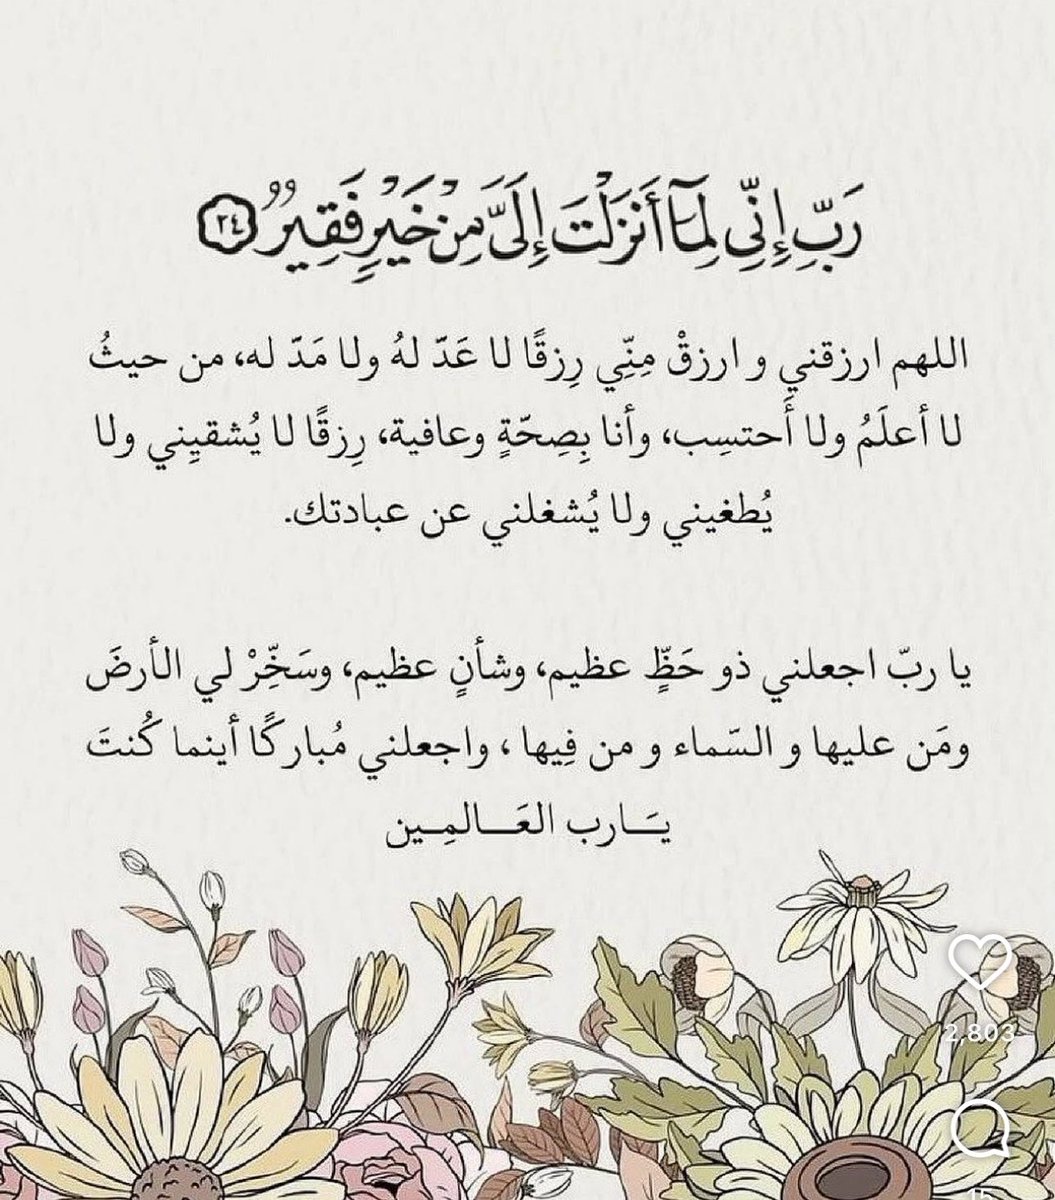 رَبِّ إِنِّي لِمَآ أَنزَلْتَ إِلَيَّ مِنْ خَيْرٍ فَقِيرٌ ٢٤
اللهم ارزقني و ارزقْ مِنِّي رِزقًا لا عَدّ لهُ ولا مَدّ له، من حيثُ
لا أعلَمُ ولا أَحتسِب، وأنا بِصِحّةٍ وعافية، رِزقًا لا يُشقيِني ولا
يُطغيني ولا يُشغلني عن عبادتك.
يا ربّ اجعلني ذو حَظٍّ عظيم، وشأنٍ عظيم، وسَخِّرْ لي الأرضَ
ومَن عليها و السّماء و من فِيها ، واجعلني مُباركًا أينما كُنتَ
يَـــارب العَـــالمِـين
2,803